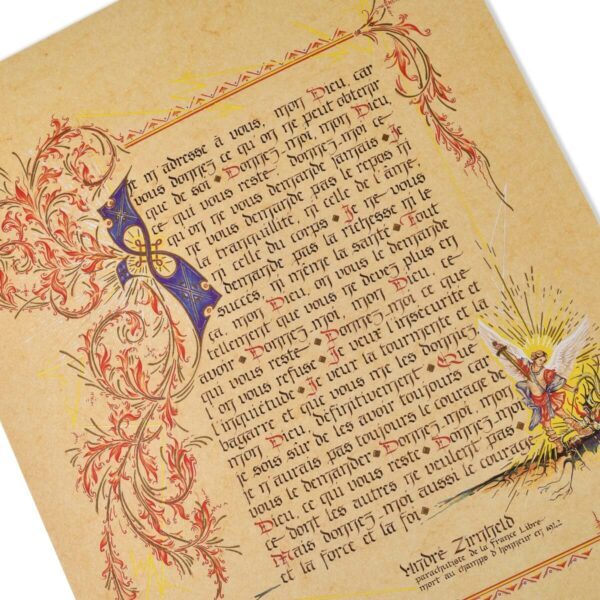 Je m'adresse à vous, mon Dieu, car
vous donnez ce qu'on ne peut obtenir
que de soi. Donnez-moi, mon Dieu,
ce qui vous reste. Donnez-moi ce
qu'on ne vous demande jamais. Je
ne vous demande pas le repos ni
la tranquillité, ni celle de l'âme
ni celle du corps. Je ne vous
demande pas la richesse ni le
succès, ni même la santé. Tout
ça, mon Dieu, on vous le demande
tellement que vous ne devez plus en
avoir. Donnez-moi, mon Dieu, ce-
qui vous reste. Donnez-moi ce que
l'on vous refuse. Je veux l'insécurité et
l'inquiétude. Je veux la tourmente et la
bagarre et que vous me les donniez,
mon Dieu, définitivement. Que
je sois sûr de les avoir toujours car
je n'aurais pas toujours le courage de
vous le demander. Donnez-moi, mon
Dieu, ce qui vous reste. Donnez-moi
ce dont les autres ne veulent pas.
Mais donnez-moi aussi le courage
et la force et la foi.
André Zirnheld
parachutiste de la France Libre-
mort au champs d'honneur en 1942